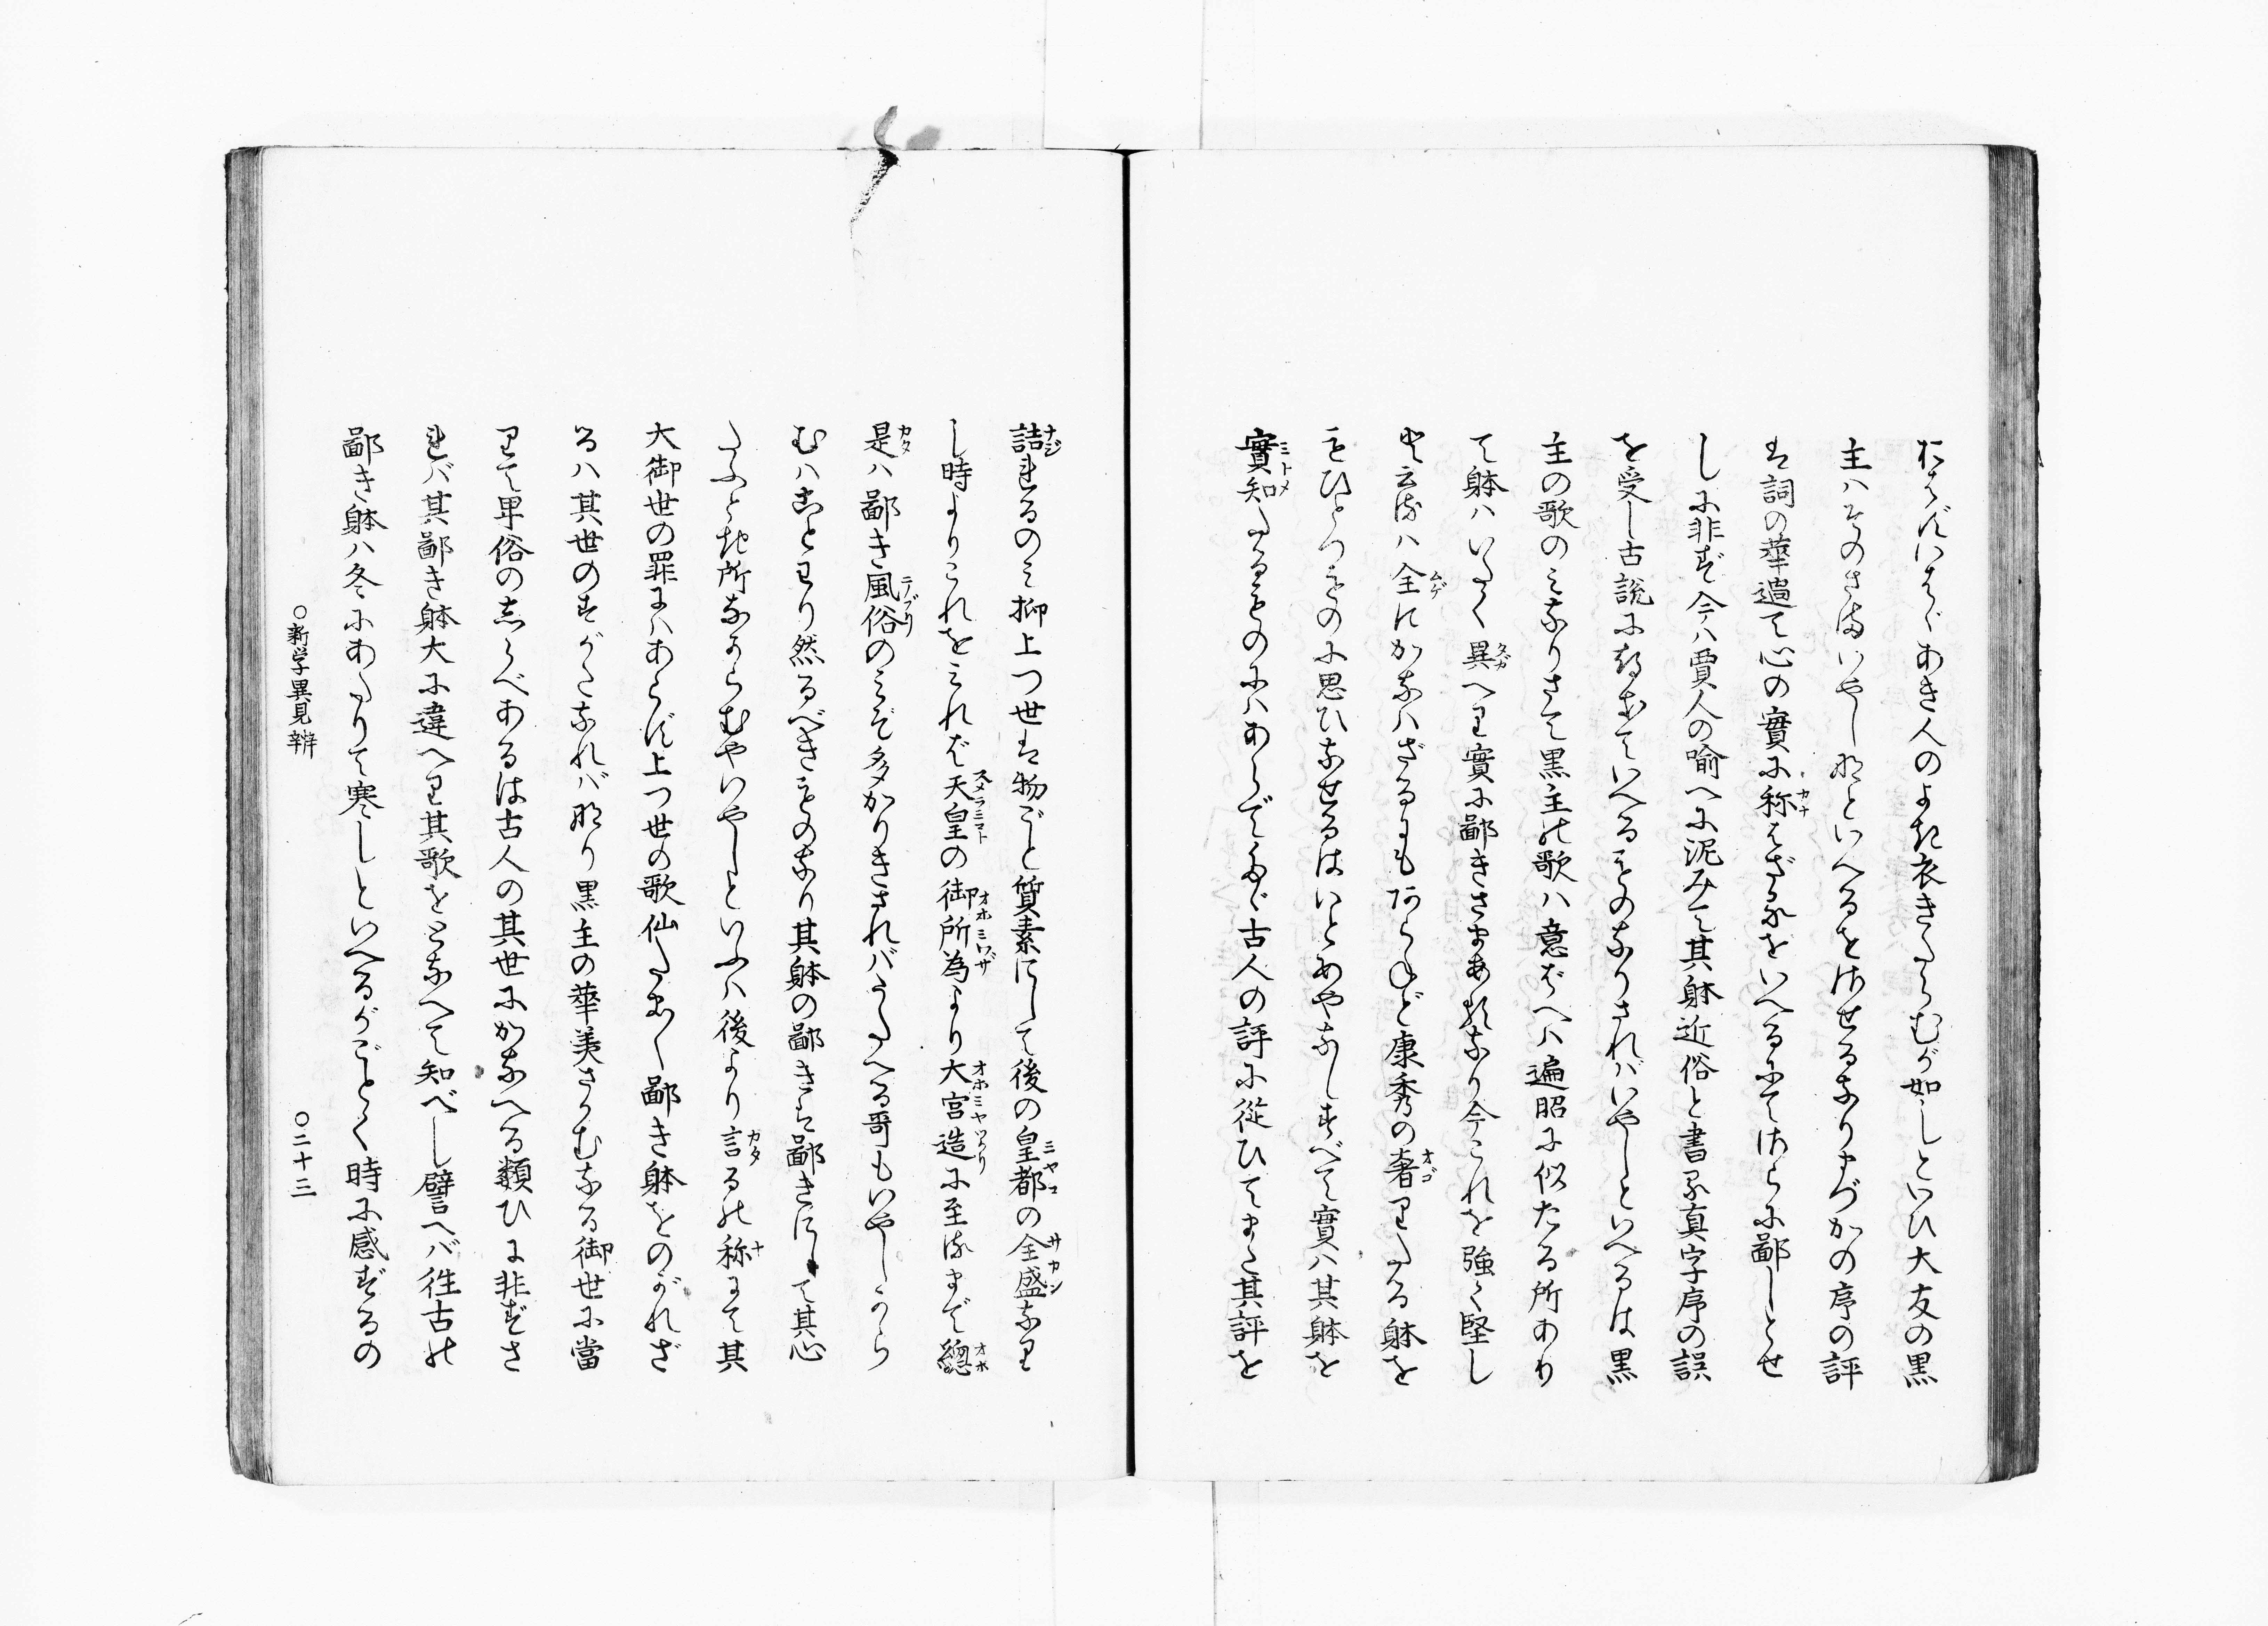 おはずいはゞあき人のよき衣きたらむが如しといひ大友の黒
主ハそのさまいやし那といへるを併せるなりまづかの序の評
は詞の華過て心の實に称はざるをいへるにて併らに鄙しとせ
しに非ず今ハ賈人の喩へに泥みて其躰近俗と書る真字序の誤
を受し古説に拠ていへるものなりさればいやしといへるは黒
主の歌のミなりさて黒主の歌ハ意ばへハ遍昭に似たる所あり
て躰ハいたく異へり實に鄙きさまあるなり今これを強く堅し
と云るハ全にかなハざるにもあらねど康秀の奢りたる躰を
もひとつものに思ひなせるはいとあやなしすべて實ハ其躰を
實知たるものにハあらでたゞ古人の評に従ひてまた其評を
詰れるのミ抑上つ世は物ごと質素にして後の皇都の全盛なり
し時よりこれをミれば天皇の御所為より大宮造に至るまで總
是ハ鄙き風俗のミぞ多かりきされバうたへる哥もいやしから
むハことわり然るべきものなり其躰の鄙きは鄙きにして其心
たふとき所なからむやいやしといふハ後より言るの称にて其
大御世の罪にハあらず上つ世の歌仙たまたま鄙き躰をのがれざ
るハ其世のすがたなれバ那り黒主の華美さかむなる御世に當
りて卑俗のしらべあるは古人の其世にかなへる類ひに非ずさ
れバ其鄙き躰大に違へり其歌をとなへて知べし譬へバ往古の
鄙き躰ハ冬にあたりて寒しといへるがごとく時に感ずるの
○新学異見辨　○二十三